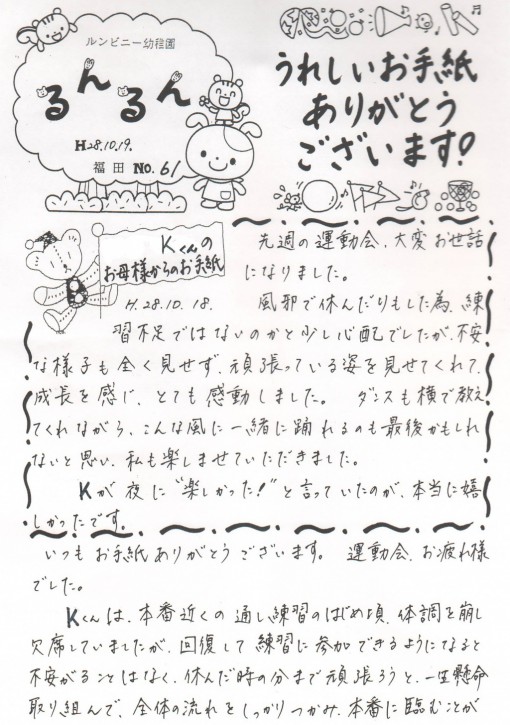 ルンビニー幼稚園
るんるん
H28.10.19.
福田 No.61
うれしいお手紙
ありがとう
ございます!
Kくんの
お母様からのお手紙
H.28.10.18.
先週の運動会、大変お世話
になりました。
風邪で休んだりもした為、練
習不足ではないのかと少し心配でしたが、不安
な様子も全く見せず、頑張っている姿を見せてくれて、
成長を感じ、とても感動しました。 ダンスも横で教え
てくれながら、こんな風に一緒に踊れるのも最後かもしれ
ないと思い、私も楽しませていただきました。
Kが夜に"楽しかった!"と言っていたのが、本当に嬉
しかったです。
いつもお手紙ありがとうございます。 運動会、お疲れ様
でした。
Kくんは、本番近くの通し練習のはじめ頃、体調を崩し
欠席していましたが、回復して練習に参加できるようになると
不安がることはなく、休んだ時の分まで頑張ろうと、一生懸命
取り組んで、全体の流れをしっかりつかみ、本番に臨むことが